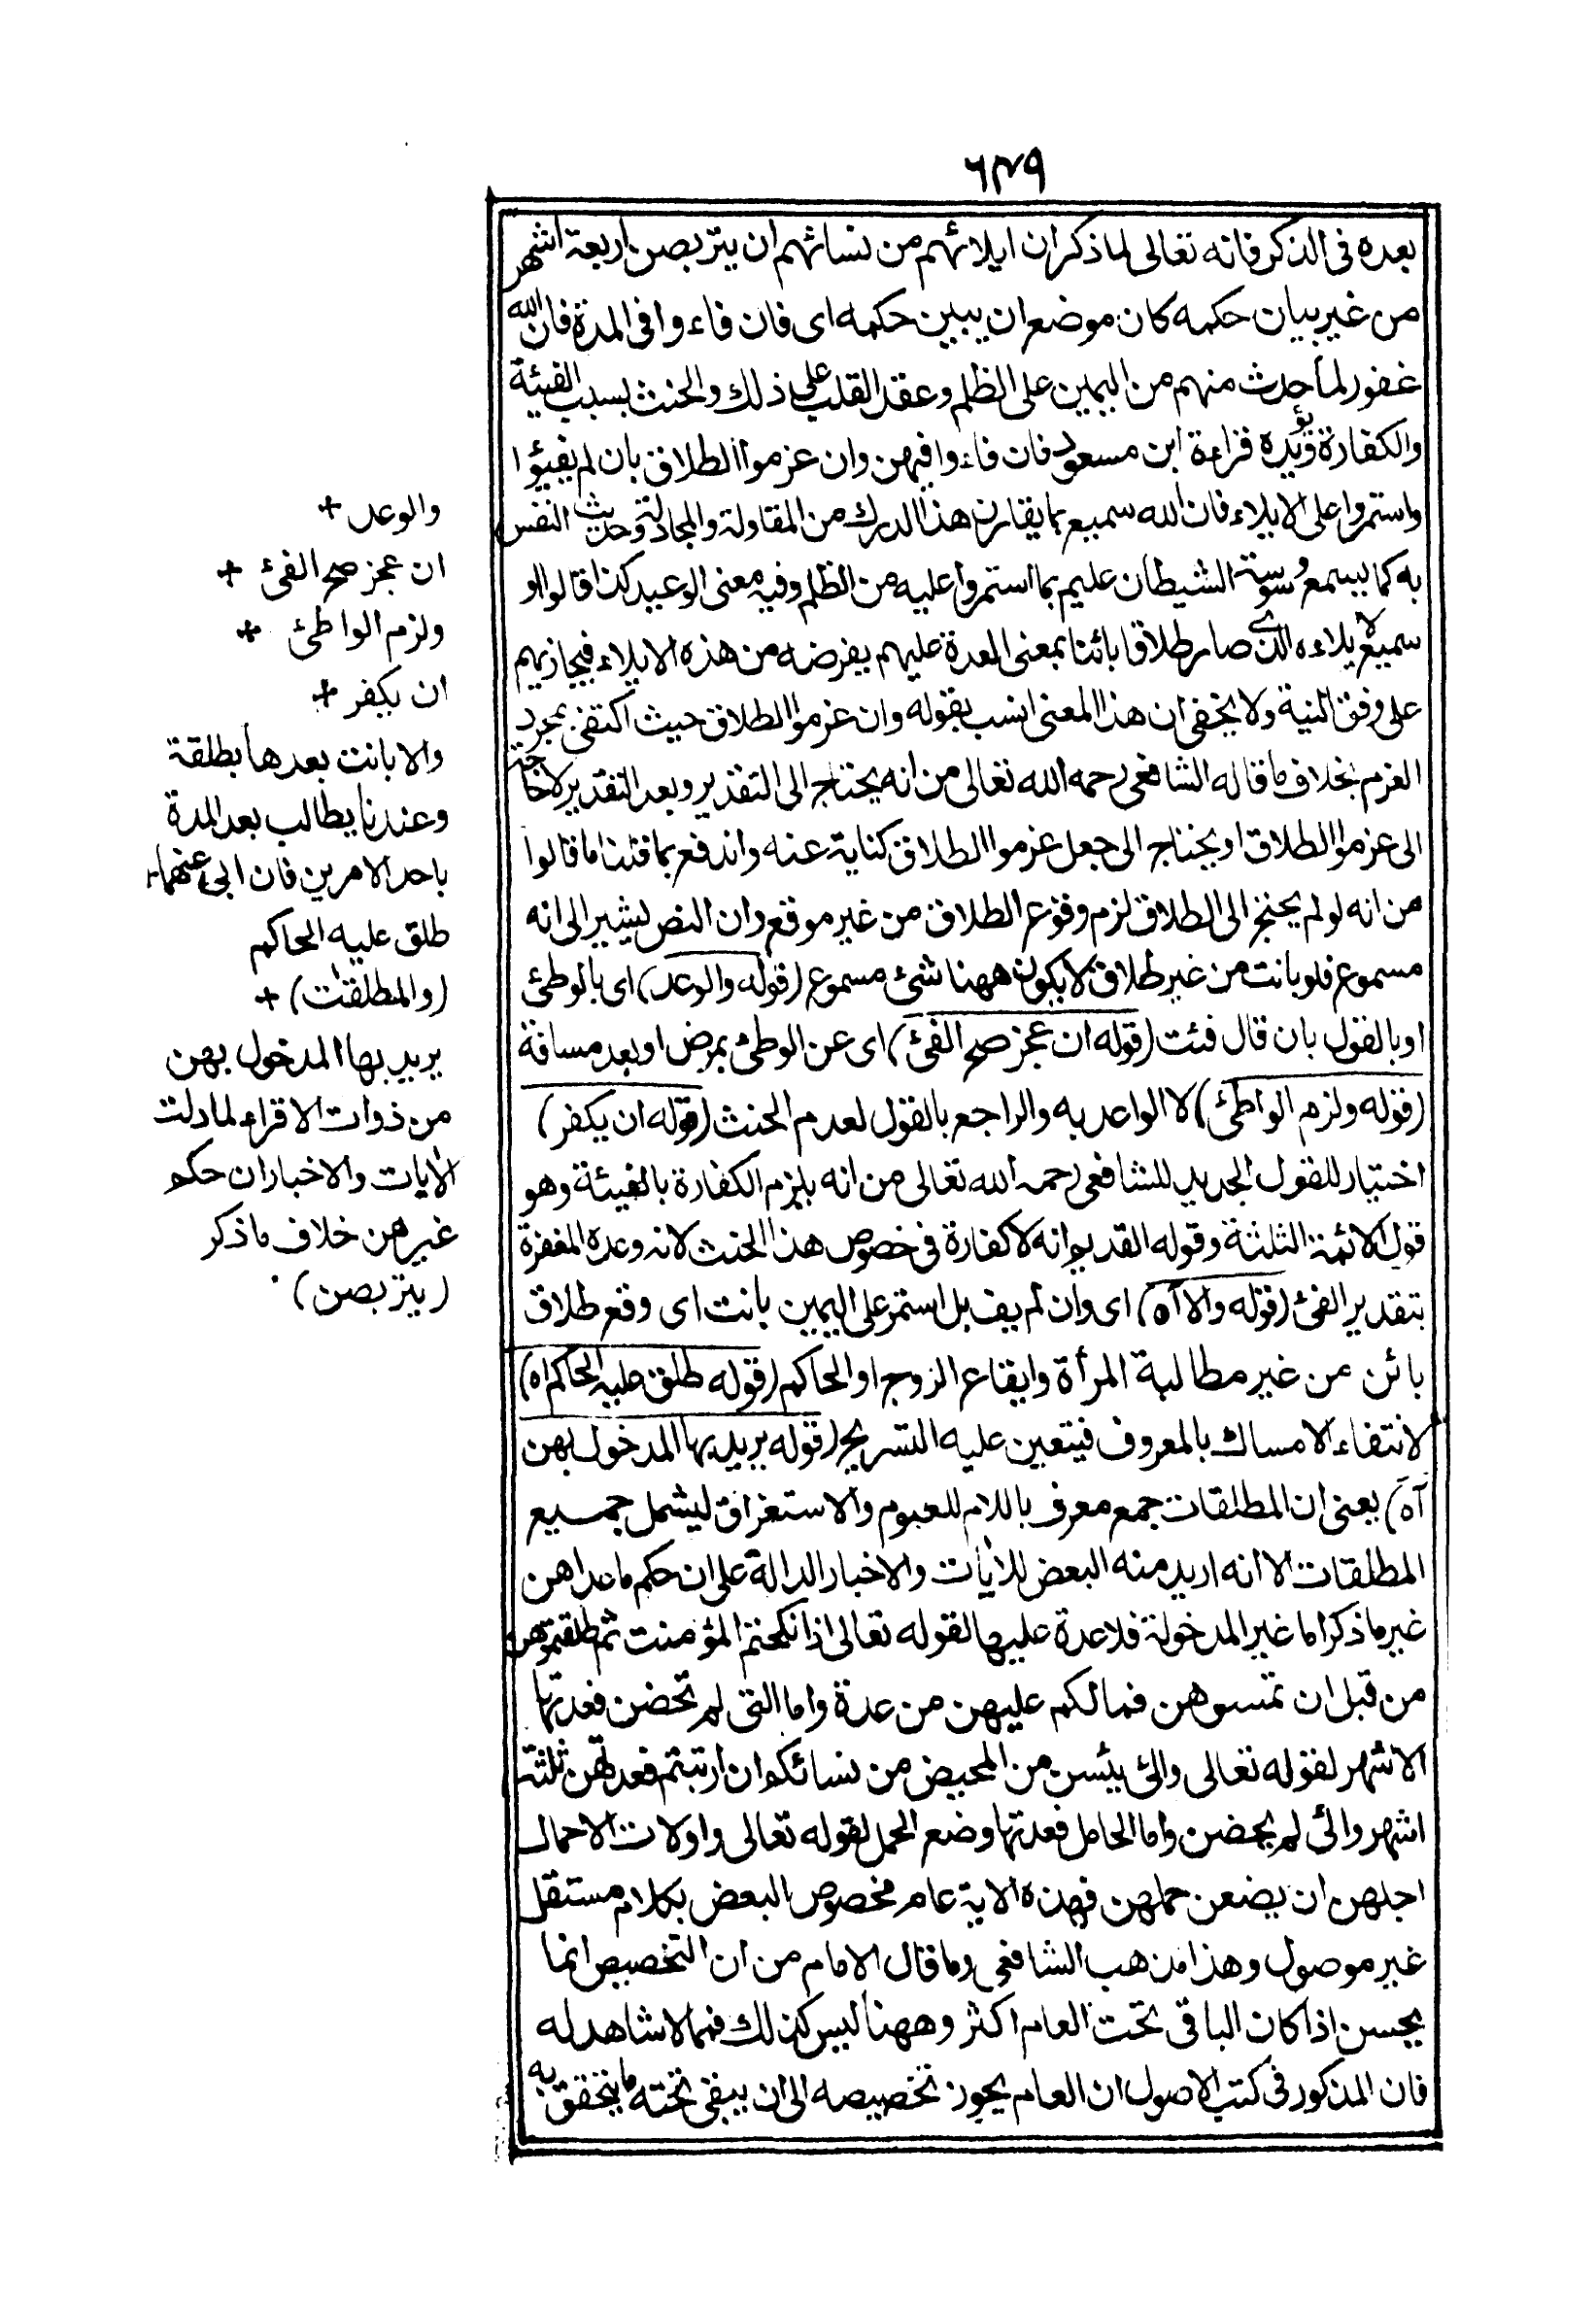 ٦٤٩
بعده فى الذكر فانه تعالى لما ذكر ان ايلائهم من نسائهم ان يتربصن اربعة اشهر
من غير بيان حكمه كان موضع ان يبين حكمه اى فان فاءوا فى المدة فان الله
غفور لما حدث منهم من اليمين على الظلم وعقد القلب على ذلك والحنث بسبب الفيئة
والكفارة ويؤيده قراءة ابن مسعود فان فاءوا فيهن وان عزموا الطلاق بان لم يفيؤا
واستمروا على الايلاء فان الله سميع بما يقارن هذا الدرك من المقاولة والمجادلة وحديث النفس
به كما يسمع وسوسة الشيطان عليم بما استمروا عليه من الظلم وفيه معنى الوعيد كذا قالوا او
سميع لايلاءه الذى صار طلاقا بائنا بمعنى المعدة عليهم يفرضه من هذه الايلاء فيجازيهم
على وفق النية ولا يخفى ان هذا المعنى انسب بقوله وان عزموا الطلاق حيث اكتفى بمجرد
العزم بخلاف ما قاله الشافعى رحمه الله تعالى من انه يحتاج الى التقدير وبعد التقدير لا حاجة
الى عزموا الطلاق او يحتاج الى جعل عزموا الطلاق كناية عنه واندفع بما قلنا ما قالوا
من انه لو لم يحتج الى الطلاق لزم وقوع الطلاق من غير موقع وان النص يشير الى انه
مسموع فلو بانت من غير طلاق لا يكون ههنا شئ مسموع (قوله والوعد) اى بالوطئ
او بالقول بان قال فئت (قوله ان عجز صح الفئ) اى عن الوطئ بمرض او بعد مسافة
(قوله ولزم الواطئ) لا الواعد به والراجع بالقول لعدم الحنث (قوله ان يكفر)
اختيار للقول الجديد للشافعى رحمه الله تعالى من انه يلزم الكفارة بالفيئة وهو
قول الائمة الثلثة وقوله القديم انه لا كفارة فى خصوص هذا الحنث لانه وعده المغفرة
بتقدير الفئ (قوله والا آه) اى وان لم يف بل استمر على اليمين بانت اى وقع طلاق
بائن من غير مطالبة المرأة وايقاع الزوج او الحاكم (قوله طلق عليه الحاكم اه)
لانتفاء الامساك بالمعروف فيتعين عليه التسريح (قوله يريد بها المدخول بهن
آه) يعنى ان المطلقات جمع معرف باللام للعموم والاستغراق ليشمل جميع
المطلقات الا انه اريد منه البعض للايات والاخبار الدالة على ان حكم ما عداهن
غير ما ذكر اما غير المدخولة فلا عدة عليها لقوله تعالى اذا نكحتم المؤمنت ثم طلقتموهن
من قبل ان تمسوهن فمالكم عليهن من عدة واما التى لم تحضن فعدتها
الاشهر لقوله تعالى والئ يئسن من المحيض من نسائكم ان ارتبتم فعدتهن ثلثة
اشهر والئ لم يحضن واما الحامل فعدتها وضع الحمل لقوله تعالى واولات الاحمال
اجلهن ان يضعن حملهن فهذه الاية عام مخصوص البعض بكلام مستقل
غير موصول وهذا مذهب الشافعى وما قال الامام من ان التخصيص انما
يحسن اذا كان الباقى تحت العام اكثر وههنا ليس كذلك فمما لا شاهد له
فان المذكور فى كتب الاصول ان العام يجوز تخصيصه الى ان يبقى تحته ما يتحقق به
والوعد +
ان عجز صح الفئ +
ولزم الواطئ +
ان يكفر +
والا بانت بعدها بطلقة
وعندنا يطالب بعد المدة
باحد الامرين فان ابى عنهما
طلق عليه الحاكم
(والمطلقت) +
يريد بها المدخول بهن
من ذوات الاقراء لما دلت
الايات والاخبار ان حكم
غيرهن خلاف ما ذكر
(يتربصن)